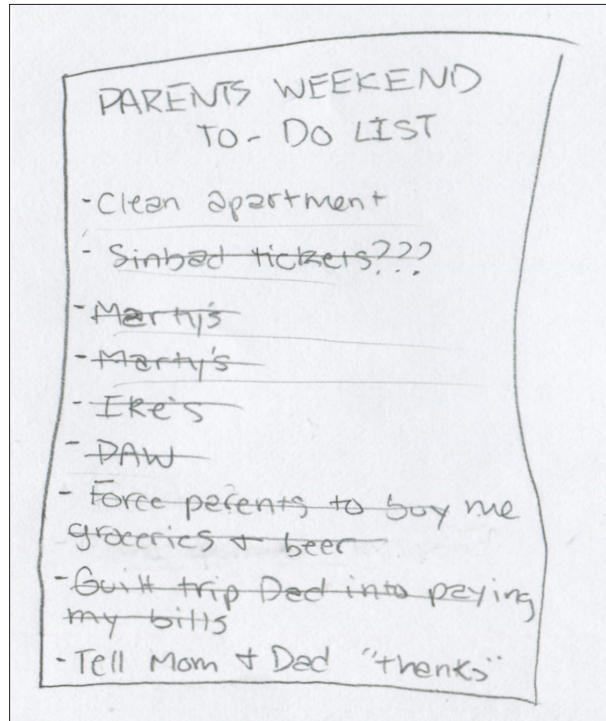 PARENTS WEEKEND
TO-DO LIST
- Clean apartment
- Sinbad tickets???
- Marty's
- Marty's
- Ike's
- DAW
- Force parents to buy me
groceries + beer
- Guilt trip Dad into paying
my bills
- Tell Mom + Dad "thanks"